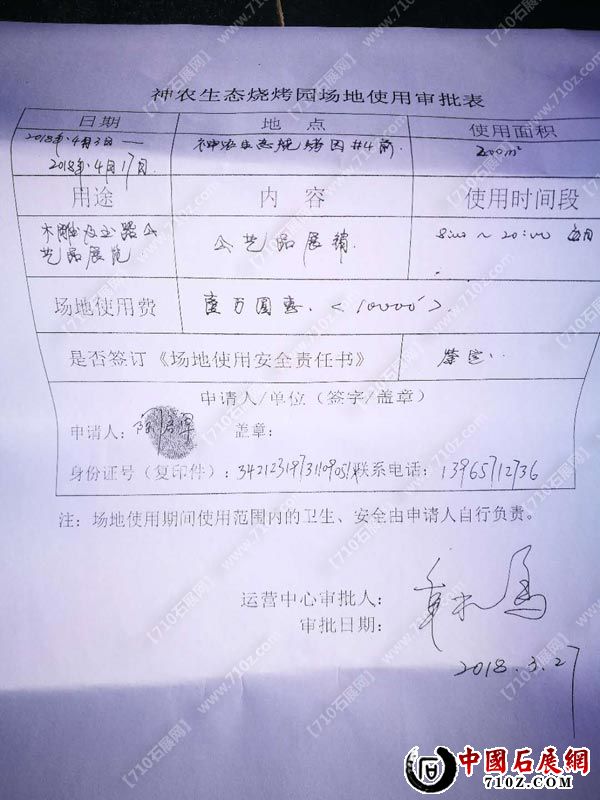 神农生态烧烤园场地使用审批表
日期 地点 使用面积
2018年.4月3日 — 神农生态烧烤园#4前 200m²
2018年.4月17日
用途 内容 使用时间段
木雕及玉器工 工艺品展销 8:00 ~ 20:00
艺品展览
场地使用费 壹万圆 <10000>
是否签订《场地使用安全责任书》
申请人/单位(签字/盖章)
申请人: 盖章:
身份证号(复印件): 联系电话: 13965712736
注:场地使用期间使用范围内的卫生、安全由申请人自行负责。
运营中心审批人:
审批日期:
2018.3.27
中國石展網
710Z.COM
【710石展网】
www.710z.com